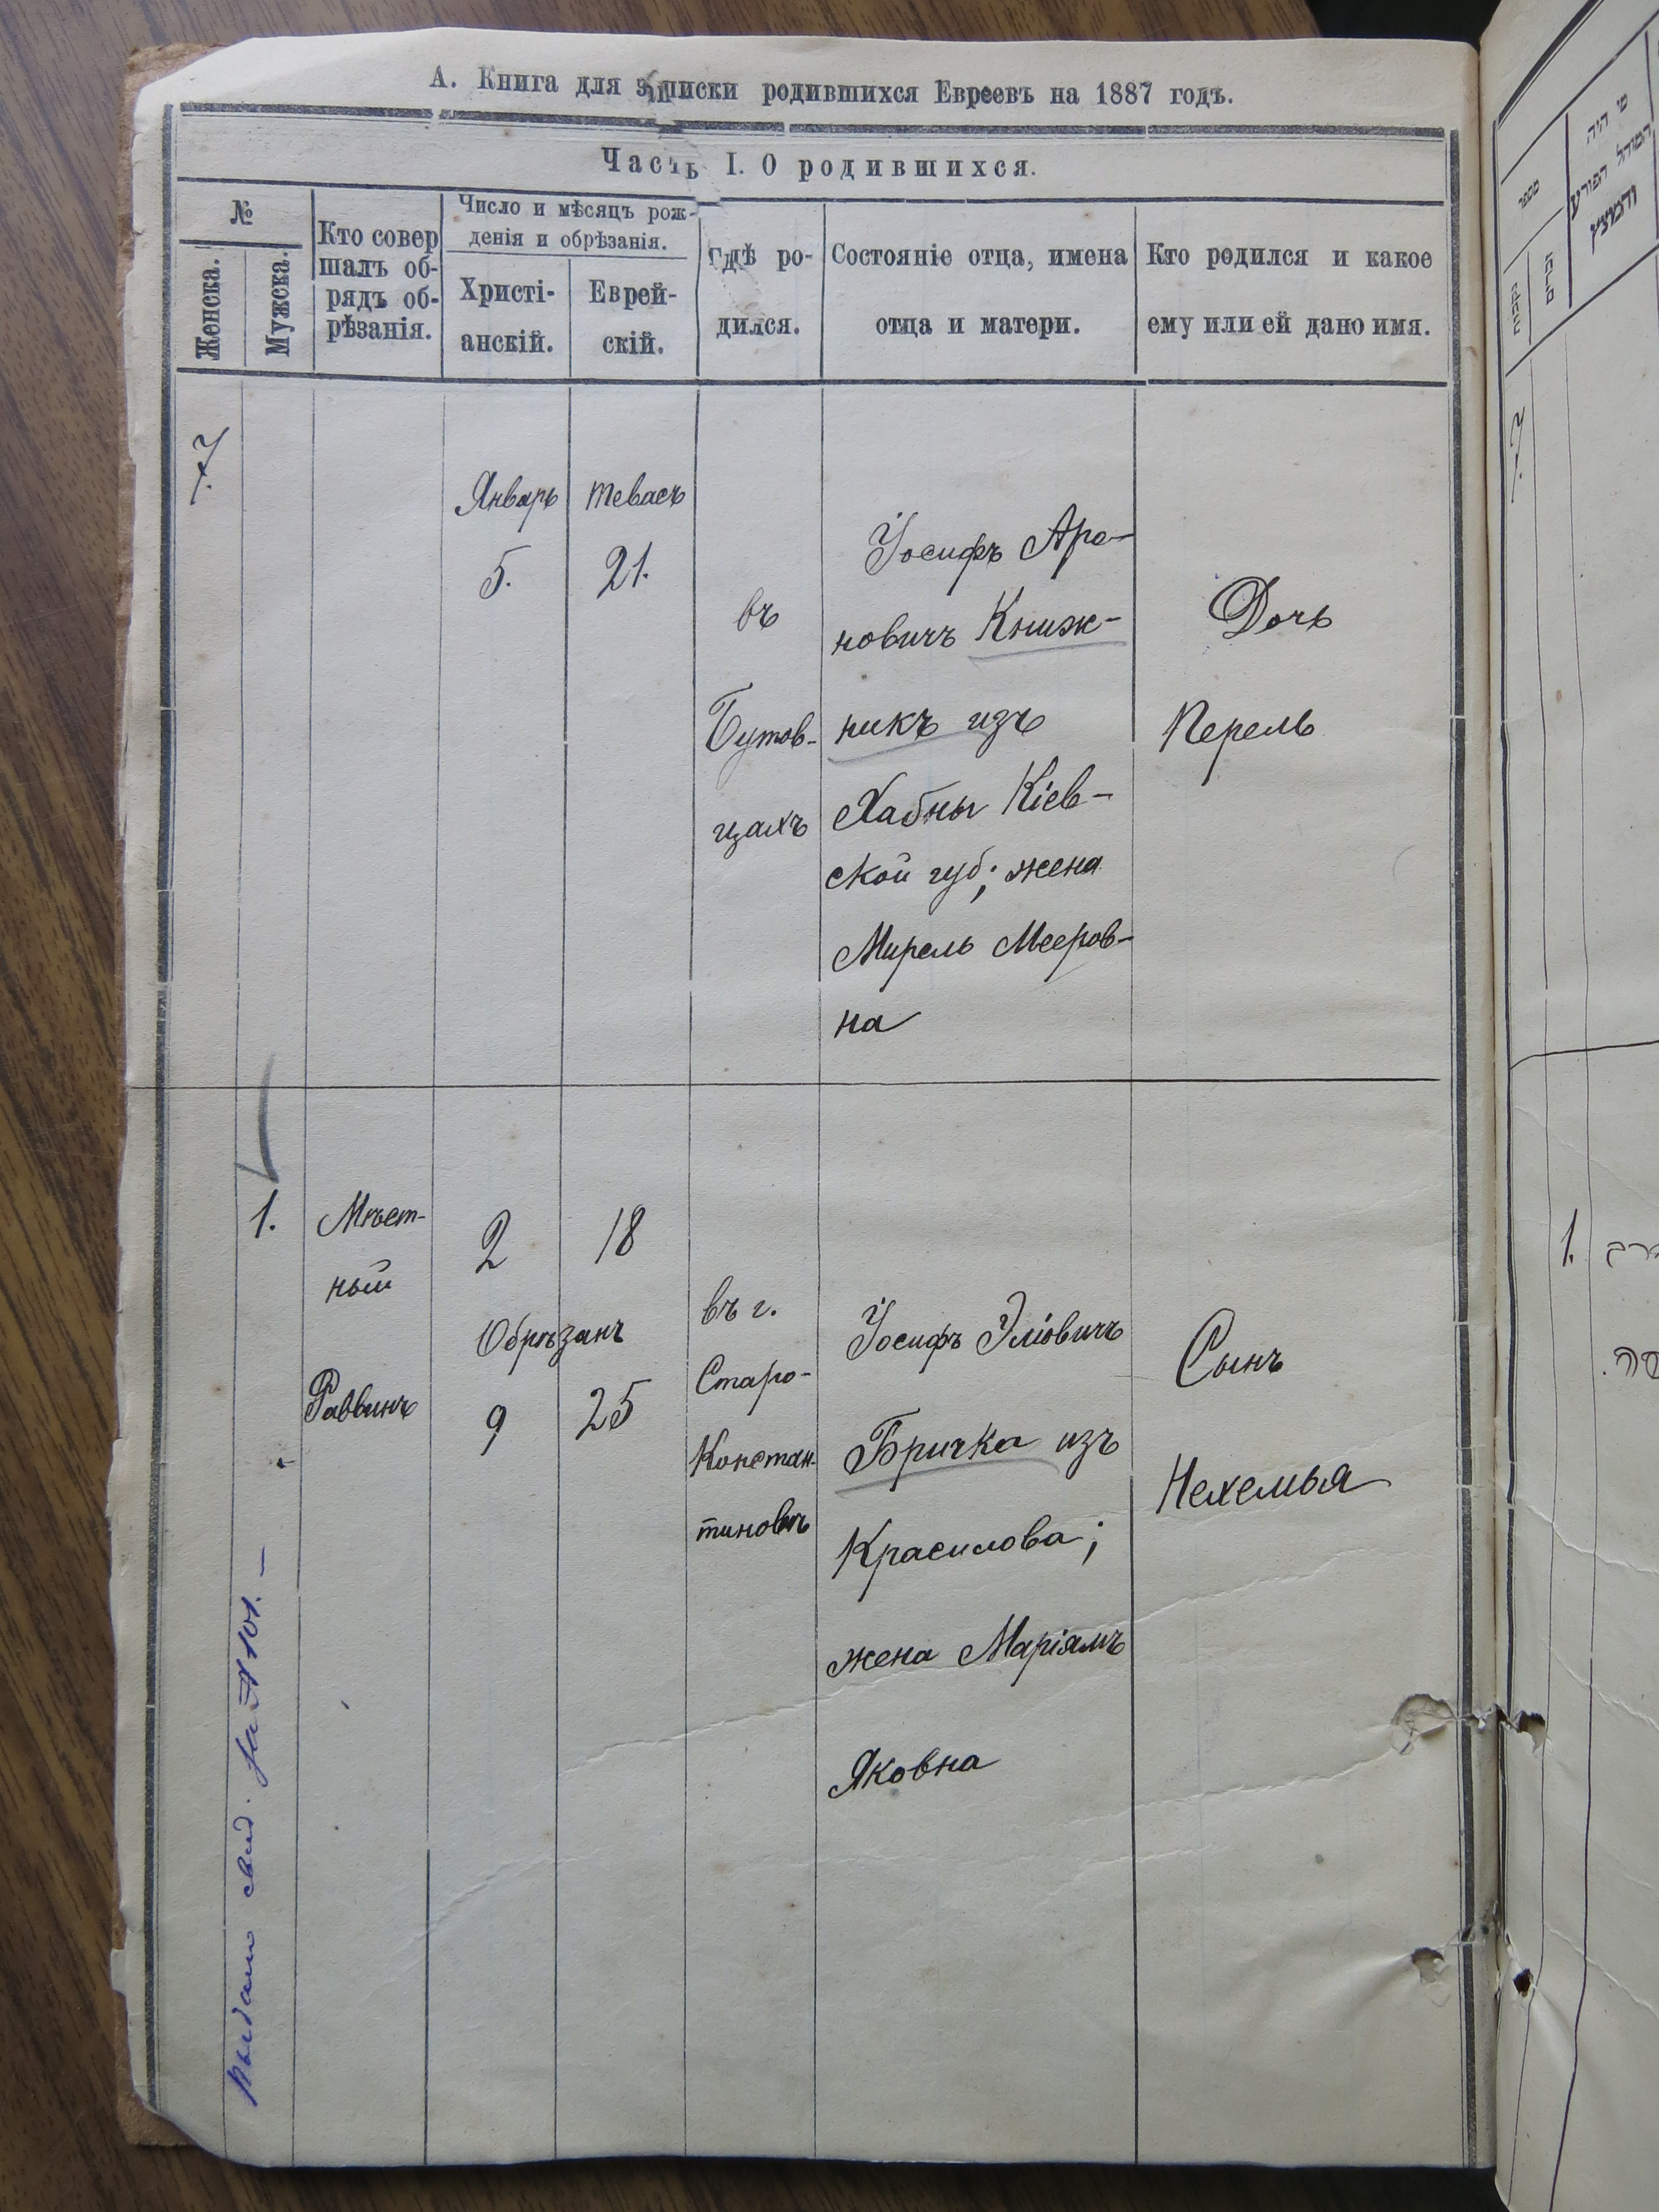 А. Книга для записки родившихся Евреевъ на 1887 годъ.
Часть I. О родившихся.
№
Женска.
Мужска.
Кто совер
шалъ об-
рядъ об-
рѣзанія.
Число и мѣсяцъ рож-
денія и обрѣзанія.
Христі-
анскій.
Еврей-
скій.
Гдѣ ро-
дился.
Состояніе отца, имена
отца и матери.
Кто родился и какое
ему или ей дано имя.
Январь
5.
Тевасъ
21.
въ
Бутов-
цахъ
Іосифъ Аро-
новичъ Книж-
никъ изъ
Хабны Кіев-
ской губ; жена
Мирель Мееров-
на
Дочь
Перель
1.
Мѣст-
ный
Раввинъ
2
18
Обрѣзанъ
9
25
въ г.
Старо-
Констан-
тиновъ
Іосифъ Эліовичъ
Бричка изъ
Красилова;
жена Маріямъ
Яковна
Сынъ
Нехемья
Выдано свид. за № 101. —
מי היה
המוהל הפורע
והמוצץ
מספר
נקבות
זכרים
1.